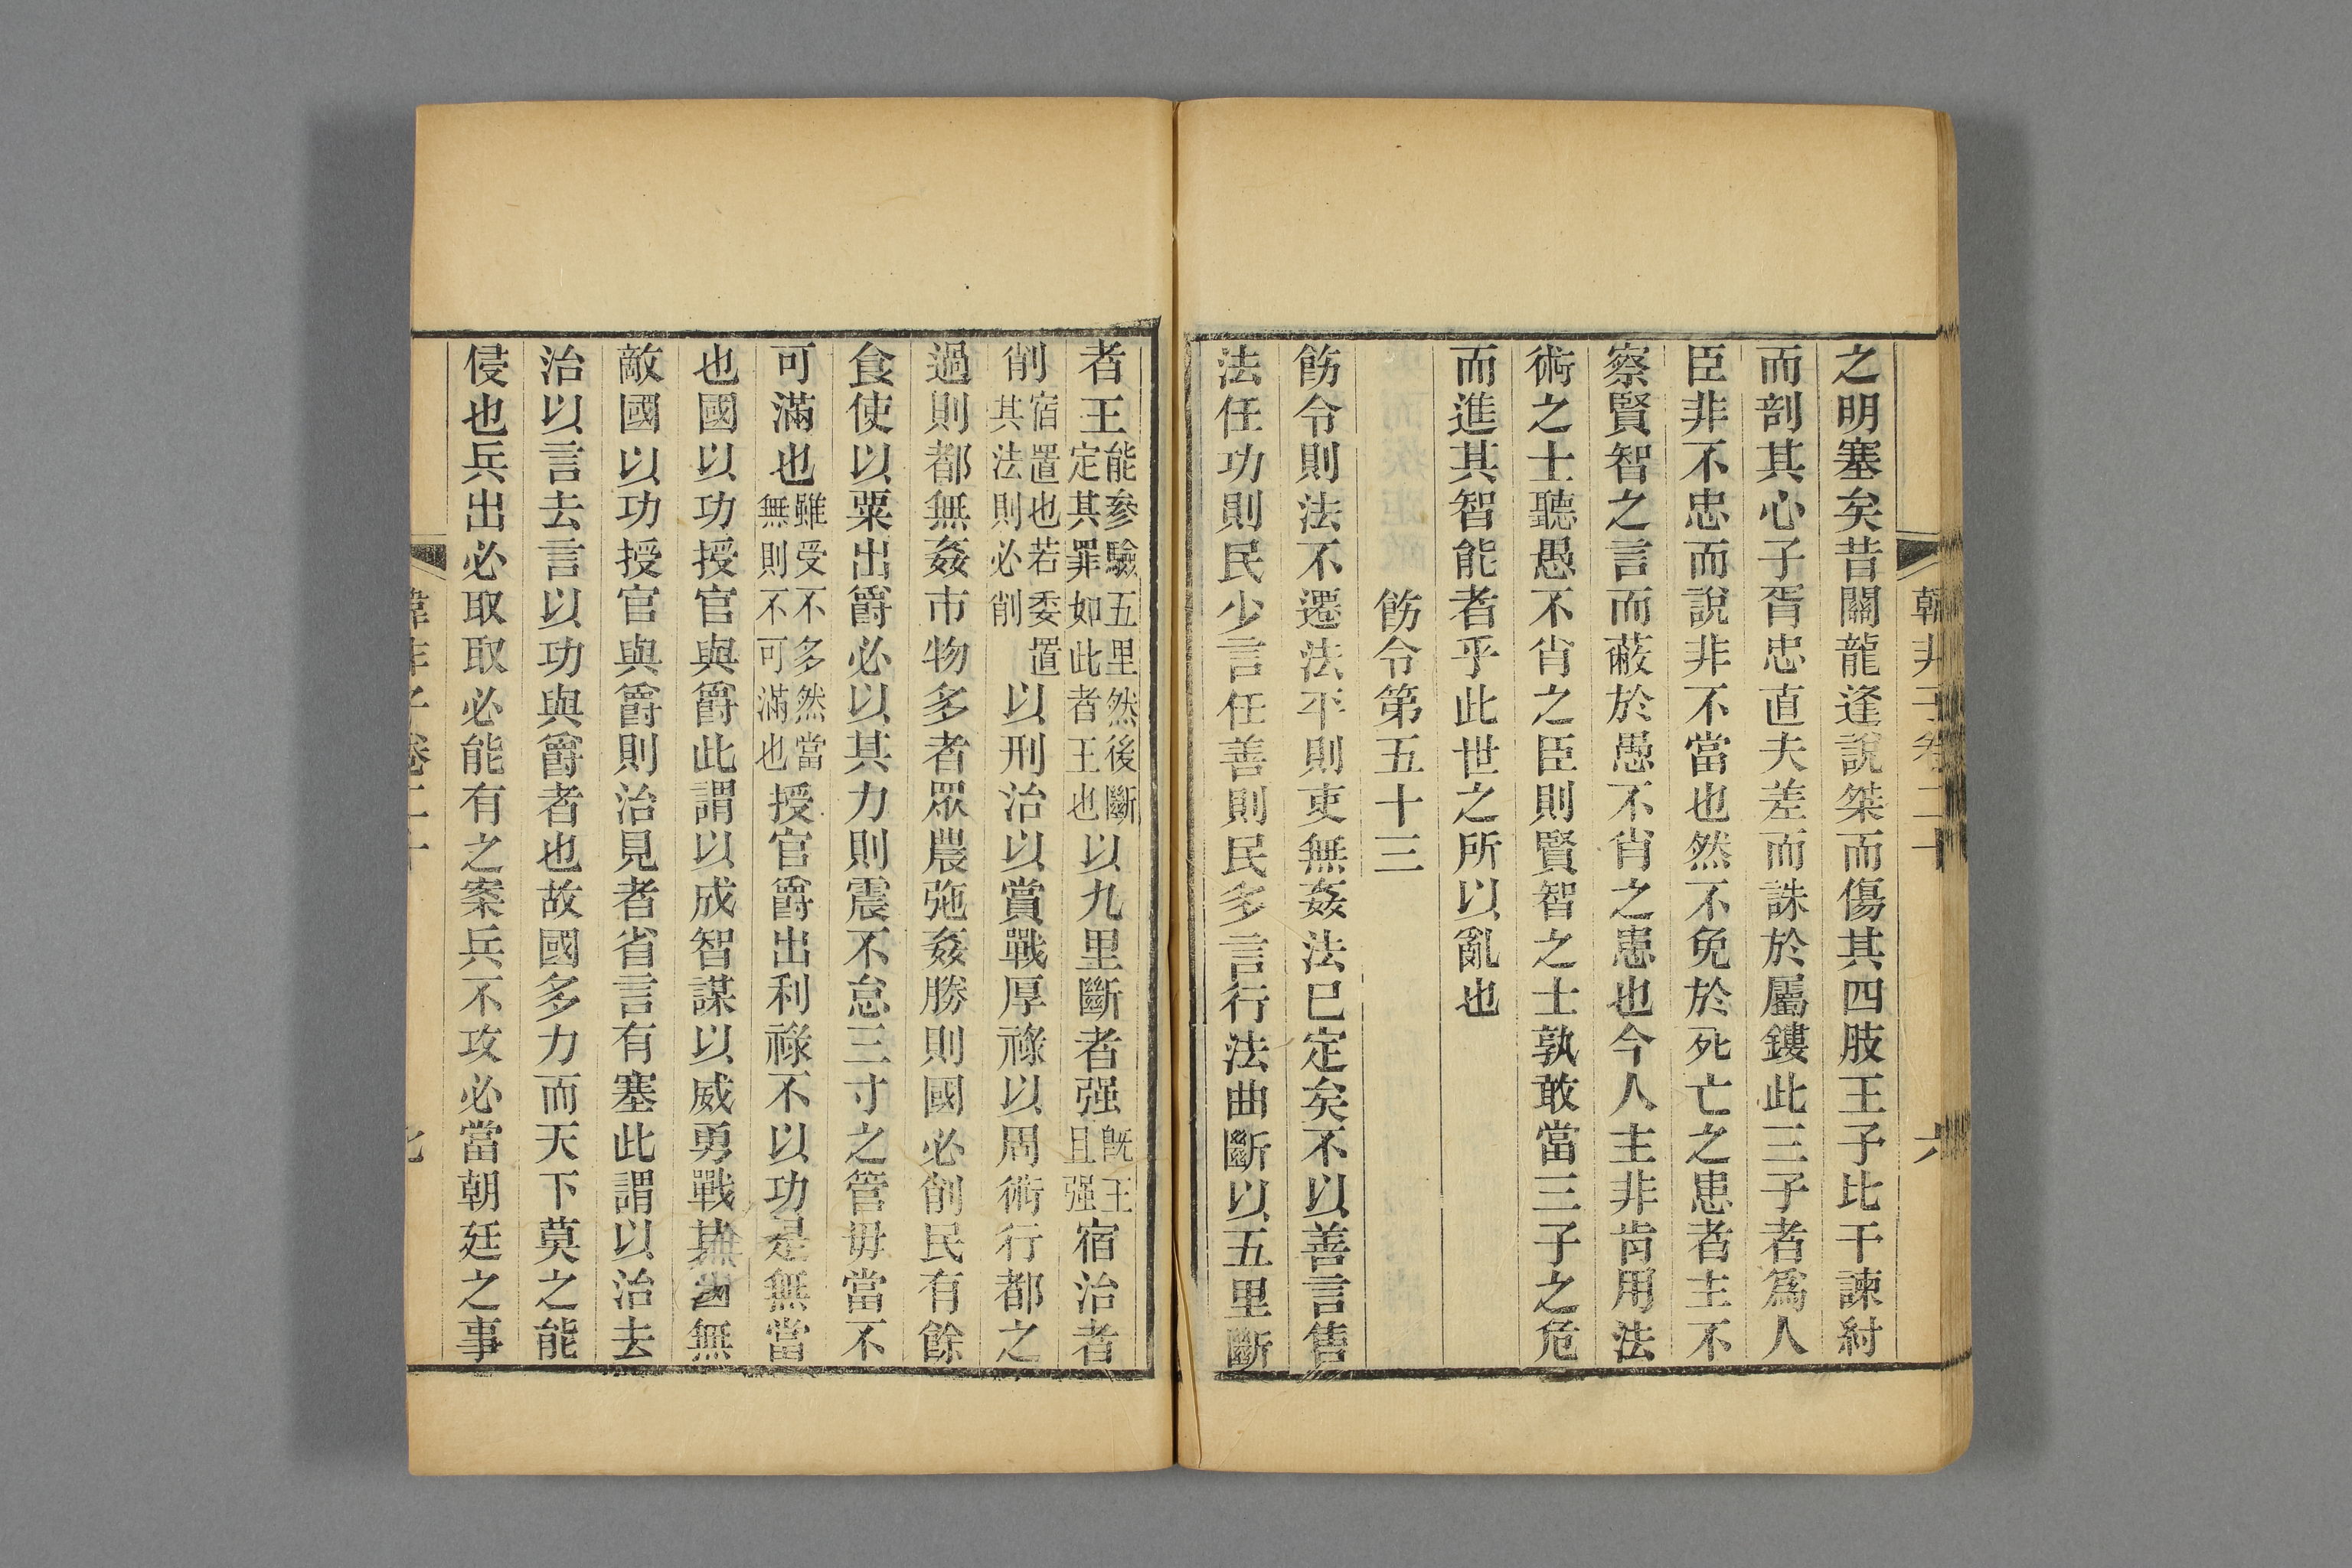 韓非子卷二十 六
之明塞矣昔關龍逢說桀而傷其四肢王子比干諫紂
而剖其心子胥忠直夫差而誅於屬鏤此三子者爲人
臣非不忠而說非不當也然不免於死亡之患者主不
察賢智之言而蔽於愚不肖之患也今人主非肯用法
術之士聽愚不肖之臣則賢智之士孰敢當三子之危
而進其智能者乎此世之所以亂也
飭令第五十三
飭令則法不遷法平則吏無姦法已定矣不以善言售
法任功則民少言任善則民多言行法曲斷以五里斷
者王能參驗五里然後斷定其罪如此者王也以九里斷者强既王且强宿治者
削宿置也若委置其法則必削以刑治以賞戰厚祿以周術行都之
過則都無姦市物多者眾農弛姦勝則國必削民有餘
食使以粟出爵必以其力則震不怠三寸之管毋當不
可滿也雖受不多然當無則不可滿也授官爵出利祿不以功是無當
也國以功授官與爵此謂以成智謀以威勇戰其國無
敵國以功授官與爵則治見者省言有塞此謂以治去
治以言去言以功與爵者也故國多力而天下莫之能
侵也兵出必取取必能有之案兵不攻必當朝廷之事
韓非子卷二十 七